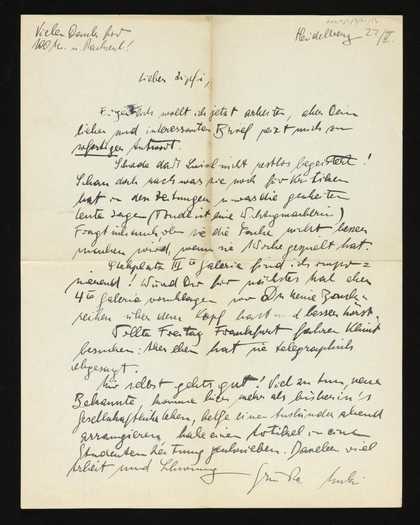 Vielen Dank für
100 M. u. Nachricht!
Heidelberg 22/II.
Lieber
Eigentlich wollt ich jetzt arbeiten, aber Dein
lieber und interessanter Brief reizt mich zu
sofortiger Antwort.
Schade daß nicht restlos begeistert!
Schau doch nach was sie noch für Kritiken
hat in den Zeitungen u was die gescheiten
Leute sagen (
Fragt sich auch ob sie die Farbe nicht lassen
wird, wenn sie 1 Woche gequält hat.
Stehplatz III te Galerie find ich
! Würd Dir für nächstes mal eher
4te Galerie vorschlagen wo Du keine
über dem Kopf hast und besser hörst.
Wollte Freitag Frankfurt fahren
besuchen: Aber eben hat sie telegraphisch
abgesagt.
Mir selbst gehts gut! Viel zu tun, neue
Bekannte, komme hier mehr als bisher in's
gesellschaftliche Leben, helfe einen Ausländerabend
arrangieren, habe einen Artikel in einer
Studentenzeitung geschrieben. Daneben viel
Arbeit und